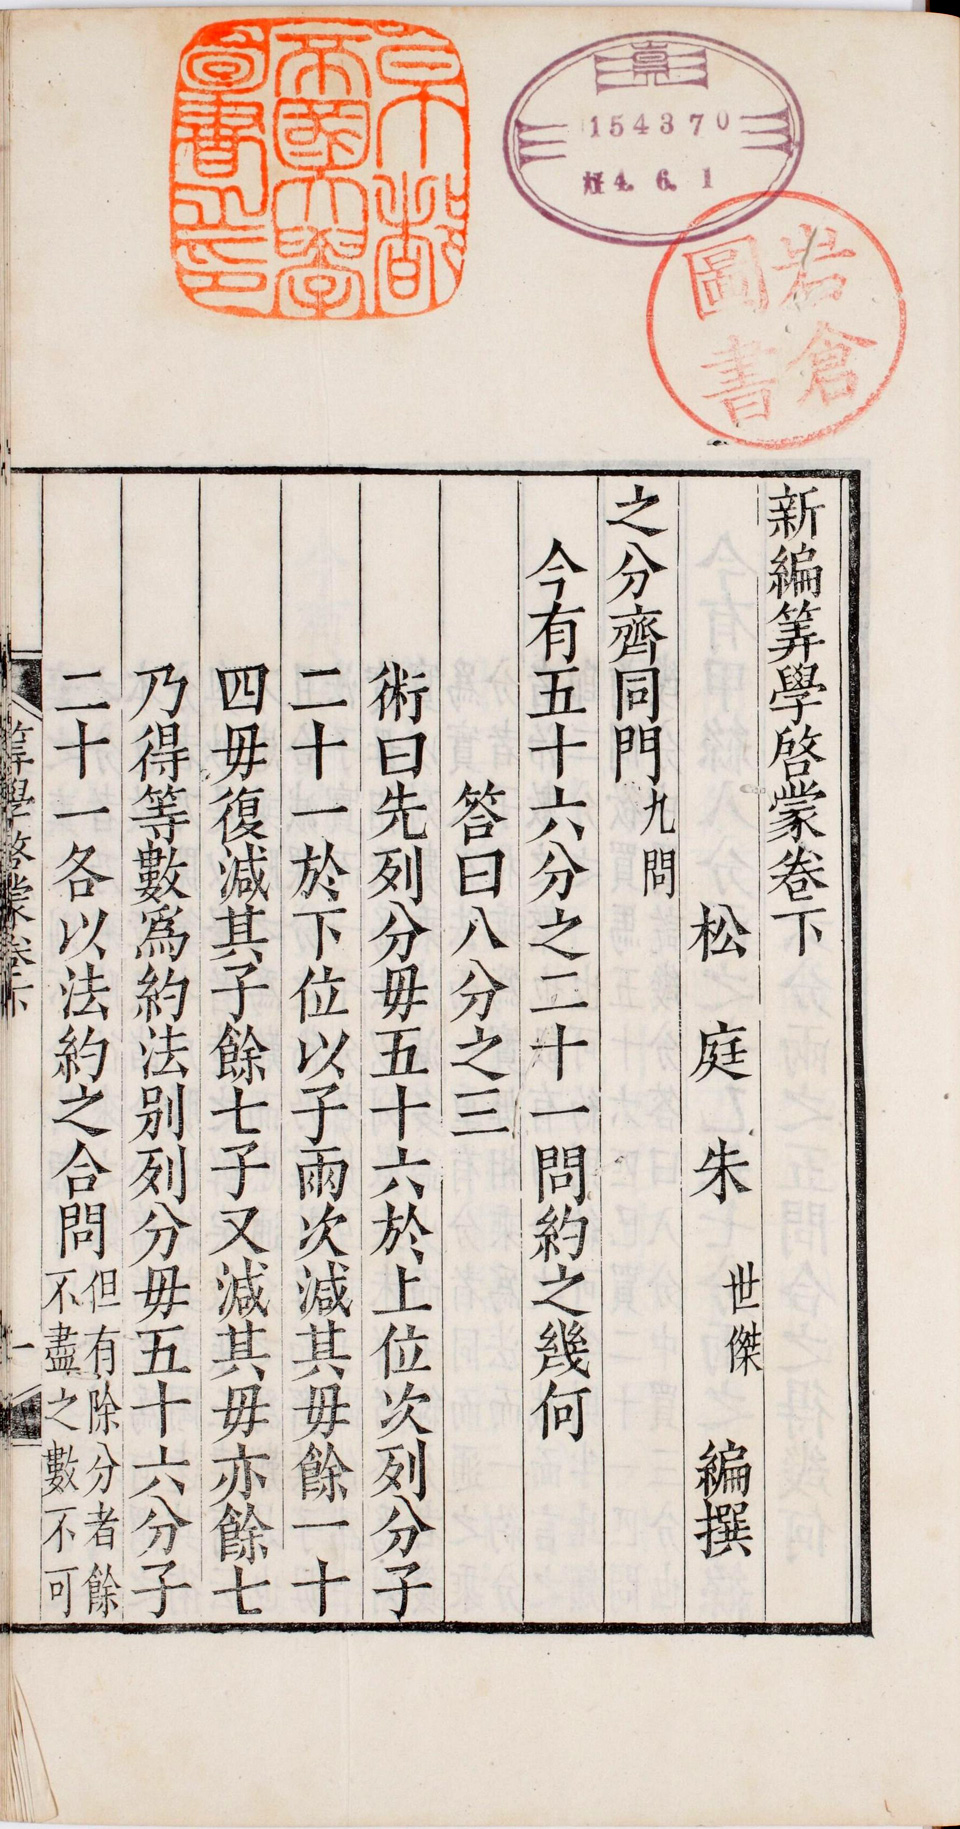 京都
帝國大學
圖書之印
154370
4. 6. 1
岩倉
圖書
新編筭學啓蒙卷下
松庭朱世傑編撰
之分齊同門九問
今有五十六分之二十一問約之幾何
答曰八分之三
術曰先列分毋五十六於上位次列分子
二十一於下位以子兩次減其毋餘一十
四毋復減其子餘七子又減其毋亦餘七
乃得等數爲約法別列分毋五十六分子
二十一各以法約之合問
但有除分者餘
不盡之數不可
筭學啓蒙卷下
一